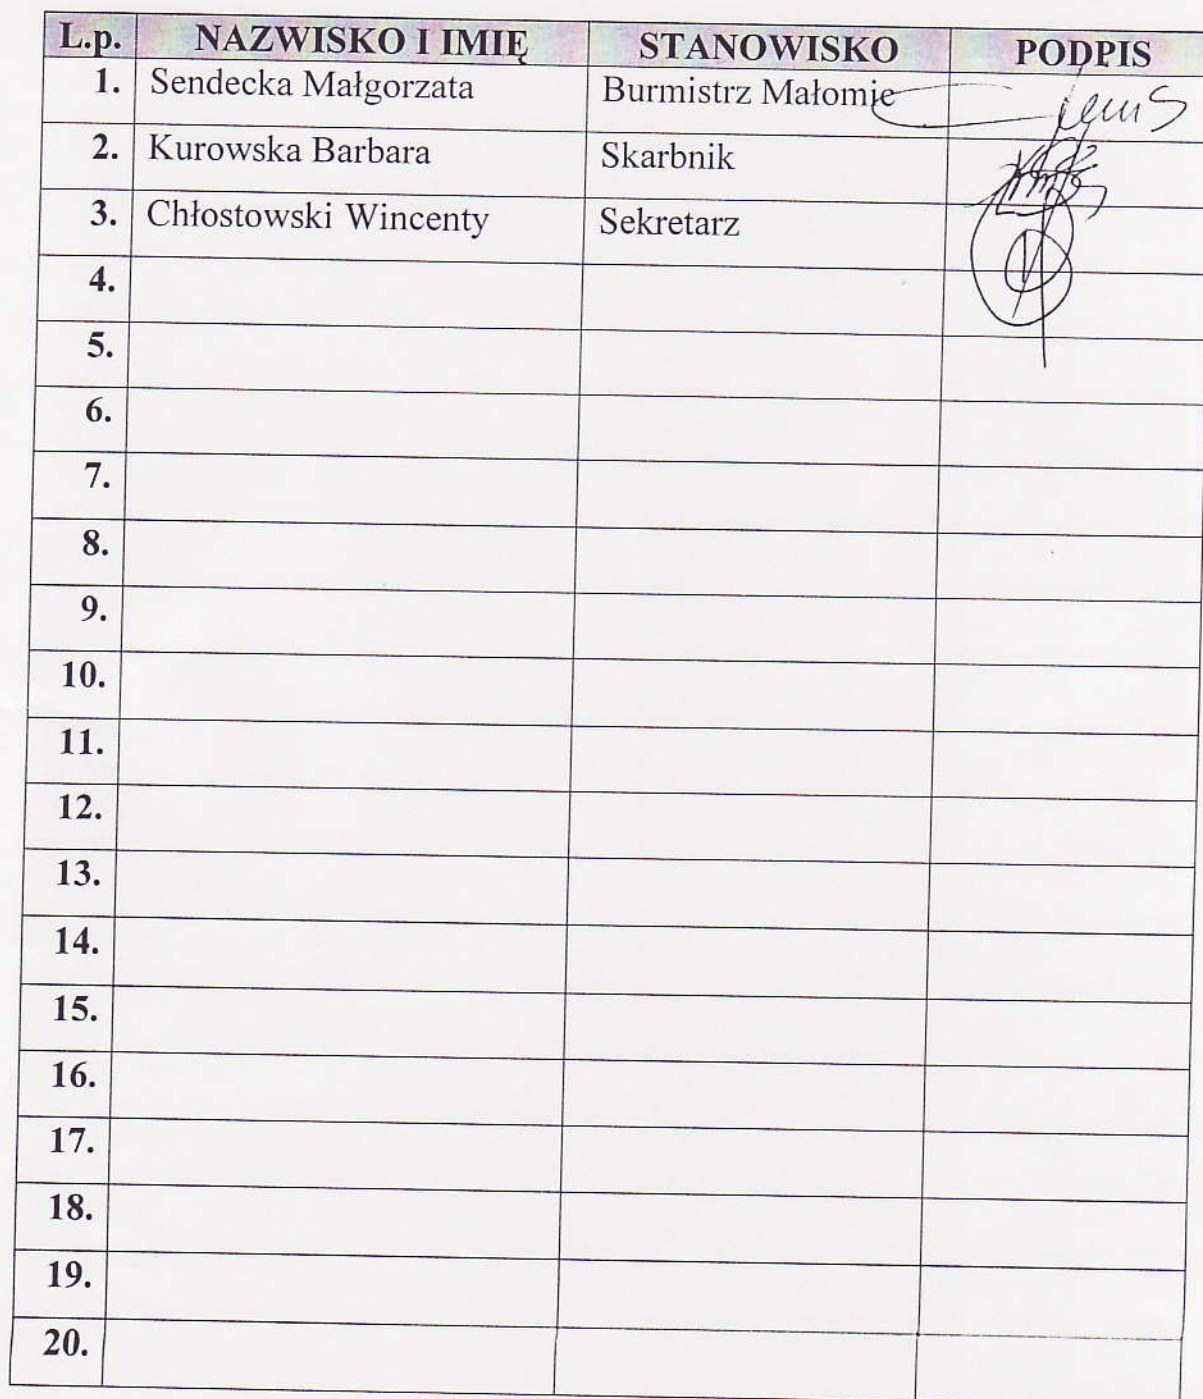 L.p. NAZWISKO I IMIĘ STANOWISKO PODPIS
1. Sendecka Małgorzata Burmistrz Małomic
2. Kurowska Barbara Skarbnik
3. Chłostowski Wincenty Sekretarz
4.
5.
6.
7.
8.
9.
10.
11.
12.
13.
14.
15.
16.
17.
18.
19.
20.